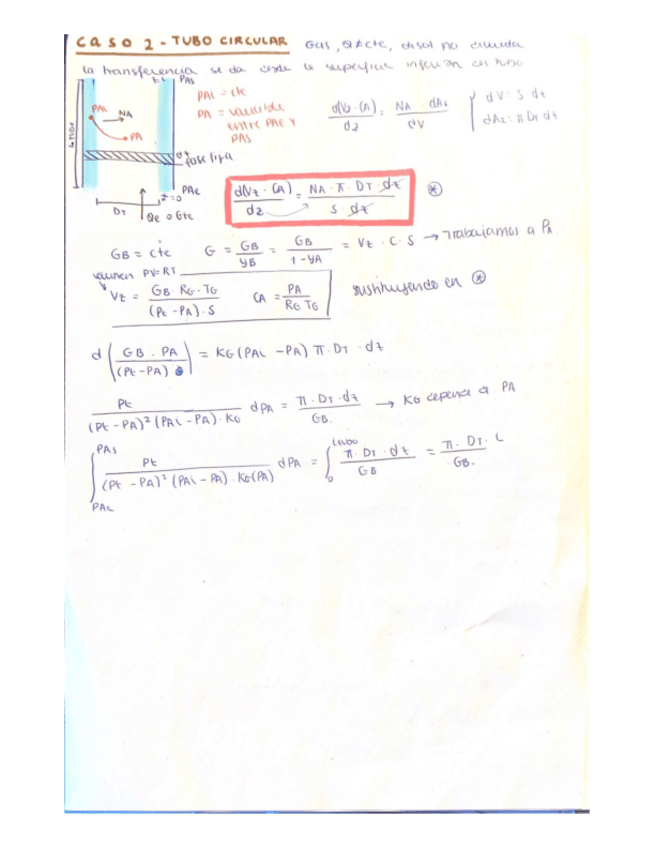 CASO 2 - TUBO CIRCULAR Gas, Q≠cte, disol no diluida
la transferencia se da desde la superficie inferior del tubo
PAs
PAi = cte
PA = variable entre PAe y PAs
d(Vz · CA)/dz = NA · dAz/dV { dV = S dz
dAz = π DT dz
PAi
NA
PA
L TUBO
dz
fase fija
z=0
PAe
DT
Qe o Gte
d(Vz · CA)/dz = NA · π · DT · dz/S · dz ⊛
GB = cte G = GB/yB = GB/1 - yA = Vz · C · S → Trabajamos a PA
volumen PV=RT
Vz = GB · RG · TG/(Pt - PA) · S CA = PA/RG TG sustituyendo en ⊛
d(GB · PA/(Pt - PA)) = KG (PAi - PA) π · DT · dz
Pt/(Pt - PA)² (PAi - PA) · KG dPA = π · DT · dz/GB. → KG depende d PA
∫ PAs PAe Pt/(Pt - PA)² (PAi - PA) · KG(PA) dPA = ∫ Ltubo 0 π · DT · dz/GB = π · DT · L/GB.